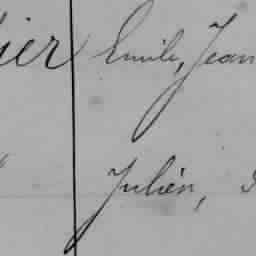 ier Emile, Jean
Julien,